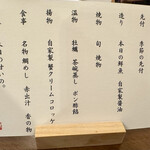 先付 季節の先付
造り 本日の鮮魚 自家製醤油
焼物 旬 焼物
温物 牡蠣 茶碗蒸し ポン酢餡
揚物 自家製 蟹クリームコロッケ
食事 名物 鯛めし 赤出汁 香の物